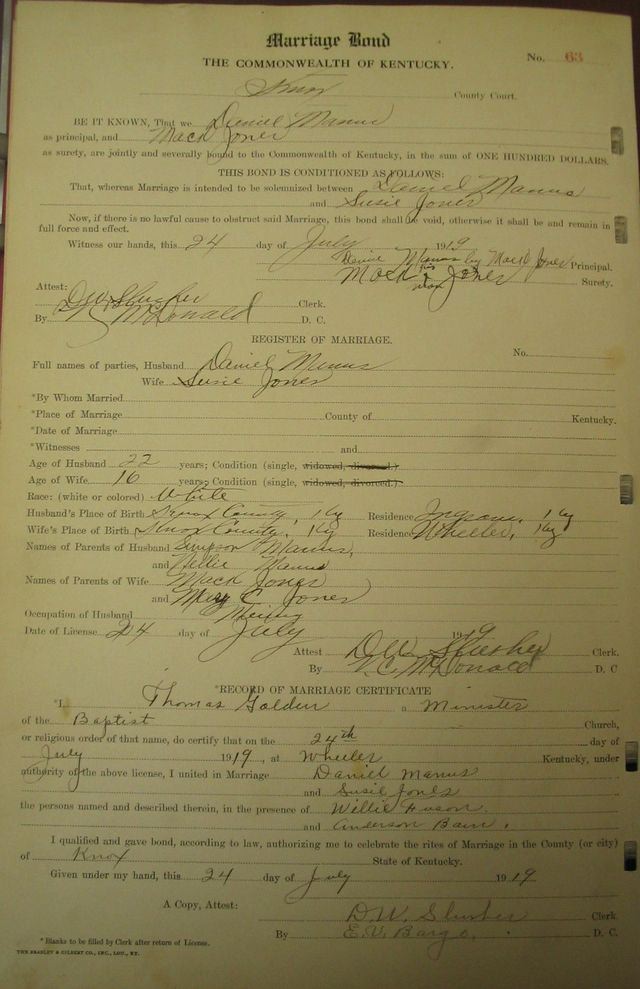 Marriage Bond
THE COMMONWEALTH OF KENTUCKY.
No. 63
Knox County Court.
BE IT KNOWN, That we Daniel Manus
as principal, and Mack Jones
as surety, are jointly and severally bound to the Commonwealth of Kentucky, in the sum of ONE HUNDRED DOLLARS.
THIS BOND IS CONDITIONED AS FOLLOWS:
That, whereas Marriage is intended to be solemnized between Daniel Manus
and Susie Jones
Now, if there is no lawful cause to obstruct said Marriage, this bond shall be void, otherwise it shall be and remain in
full force and effect.
Witness our hands, this 24 day of July 1919
Daniel Manus by Mack Jones Principal.
Mack his mark Jones Surety.
Attest:
D.W. Slusher Clerk.
By McDonald D. C.
REGISTER OF MARRIAGE.
No.
Full names of parties, Husband Daniel Manus
Wife Susie Jones
*By Whom Married
*Place of Marriage County of Kentucky.
*Date of Marriage
*Witnesses and
Age of Husband 22 years; Condition (single, widowed, divorced.)
Age of Wife 16 years; Condition (single, widowed, divorced.)
Race: (white or colored) White
Husband's Place of Birth Knox County, Ky Residence Ingram, Ky
Wife's Place of Birth Knox County, Ky Residence Wheeler, Ky
Names of Parents of Husband Simpson Manus,
and Nellie Manus
Names of Parents of Wife Mack Jones
and Mary C Jones
Occupation of Husband Mining
Date of License 24 day of July 1919
Attest D.W. Slusher Clerk.
By V.C. McDonald D. C
*RECORD OF MARRIAGE CERTIFICATE
*I, Thomas Golden a Minister
of the Baptist Church,
or religious order of that name, do certify that on the 24th day of
July 1919, at Wheeler Kentucky, under
authority of the above license, I united in Marriage Daniel Manus
and Susie Jones
the persons named and described therein, in the presence of Willie
and Anderson Bain.
I qualified and gave bond, according to law, authorizing me to celebrate the rites of Marriage in the County (or city)
of Knox State of Kentucky.
Given under my hand, this 24 day of July 1919
A Copy, Attest:
D.W. Slusher Clerk.
By E.V. Bargo. D. C.
*Blanks to be filled by Clerk after return of License.
THE BRADLEY & GILBERT CO., INC., LOU., KY.